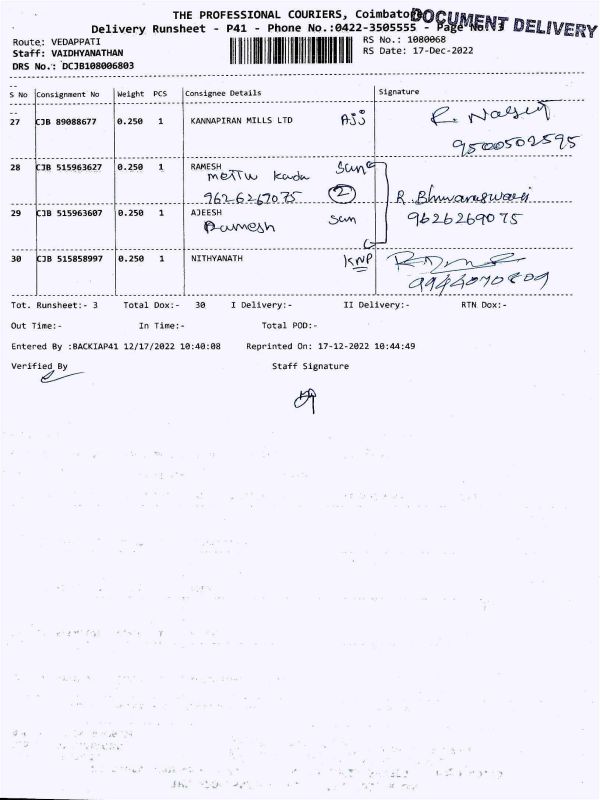 THE PROFESSIONAL COURIERS, Coimbato
DOCUMENT DELIVERY
Delivery Runsheet - P41 - Phone No.:0422-3505555 - Page No.: 3
Route: VEDAPPATI
RS No.: 1080068
Staff: VAIDHYANATHAN
RS Date: 17-Dec-2022
DRS No.: DCJB108006803
S No Consignment No Weight PCS Consignee Details Signature
27 CJB 89088677 0.250 1 KANNAPIRAN MILLS LTD
9500502595
28 CJB 515963627 0.250 1 RAMESH
mettu kada
9626267075 2 R. Bhuvaneswari
29 CJB 515963607 0.250 1 AJEESH 9626269075
Ramesh
30 CJB 515858997 0.250 1 NITHYANATH KNP
Tot. Runsheet:- 3 Total Dox:- 30 I Delivery:- II Delivery:- RTN Dox:-
Out Time:- In Time:- Total POD:-
Entered By :BACKIAP41 12/17/2022 10:40:08 Reprinted On: 17-12-2022 10:44:49
Verified By Staff Signature